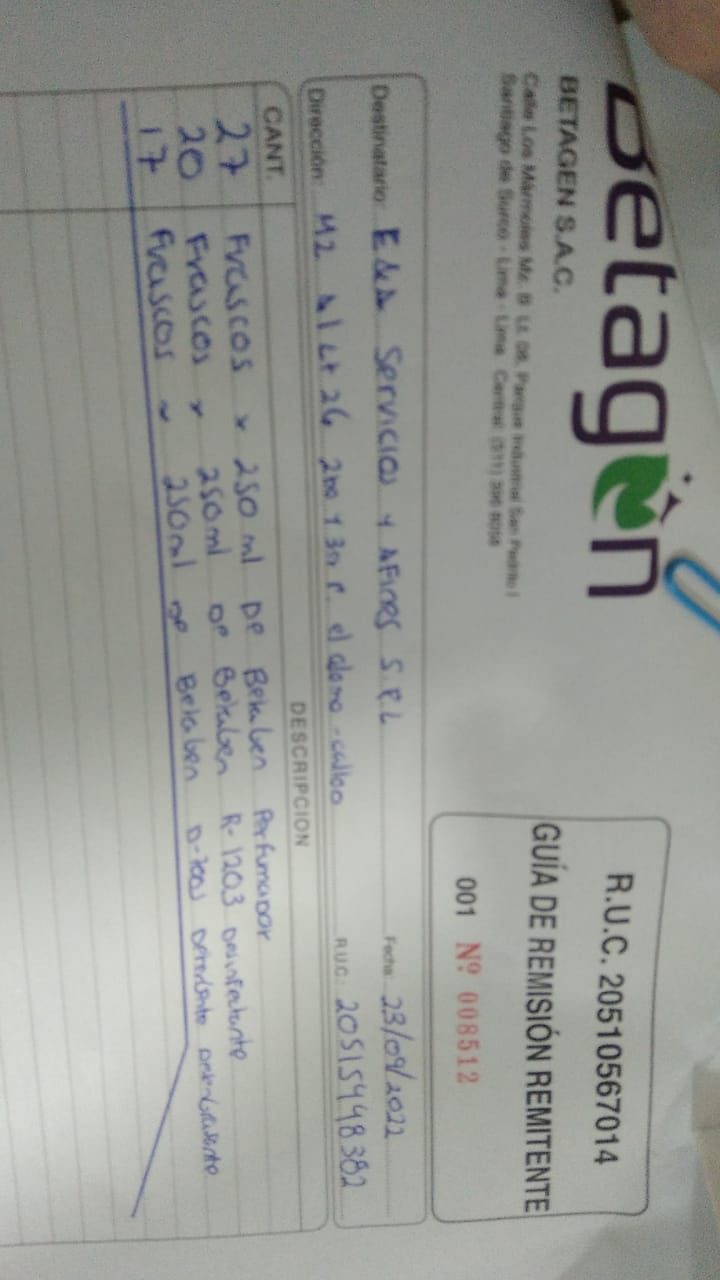 Betagen
BETAGEN S.A.C.
Calle Los Mármoles Mz. B Lt. 08, Parque Industrial San Pedrito I
Santiago de Surco - Lima - Lima Central: (511)
R.U.C. 20510567014
GUÍA DE REMISIÓN REMITENTE
001 Nº 008512
Destinatario: E&A Servicios y AFines S.R.L Fecha: 23/09/2022
Dirección: Mz A1 Lt 26 2da y 3ra P. el alamo - callao R.U.C.: 20515448382
CANT. DESCRIPCION
27 Frascos x 250 ml DE Betaben Perfumador
20 Frascos x 250 ml DE Betaben R-1203 Desinfectante
17 Frascos x 250 ml DE Betaben